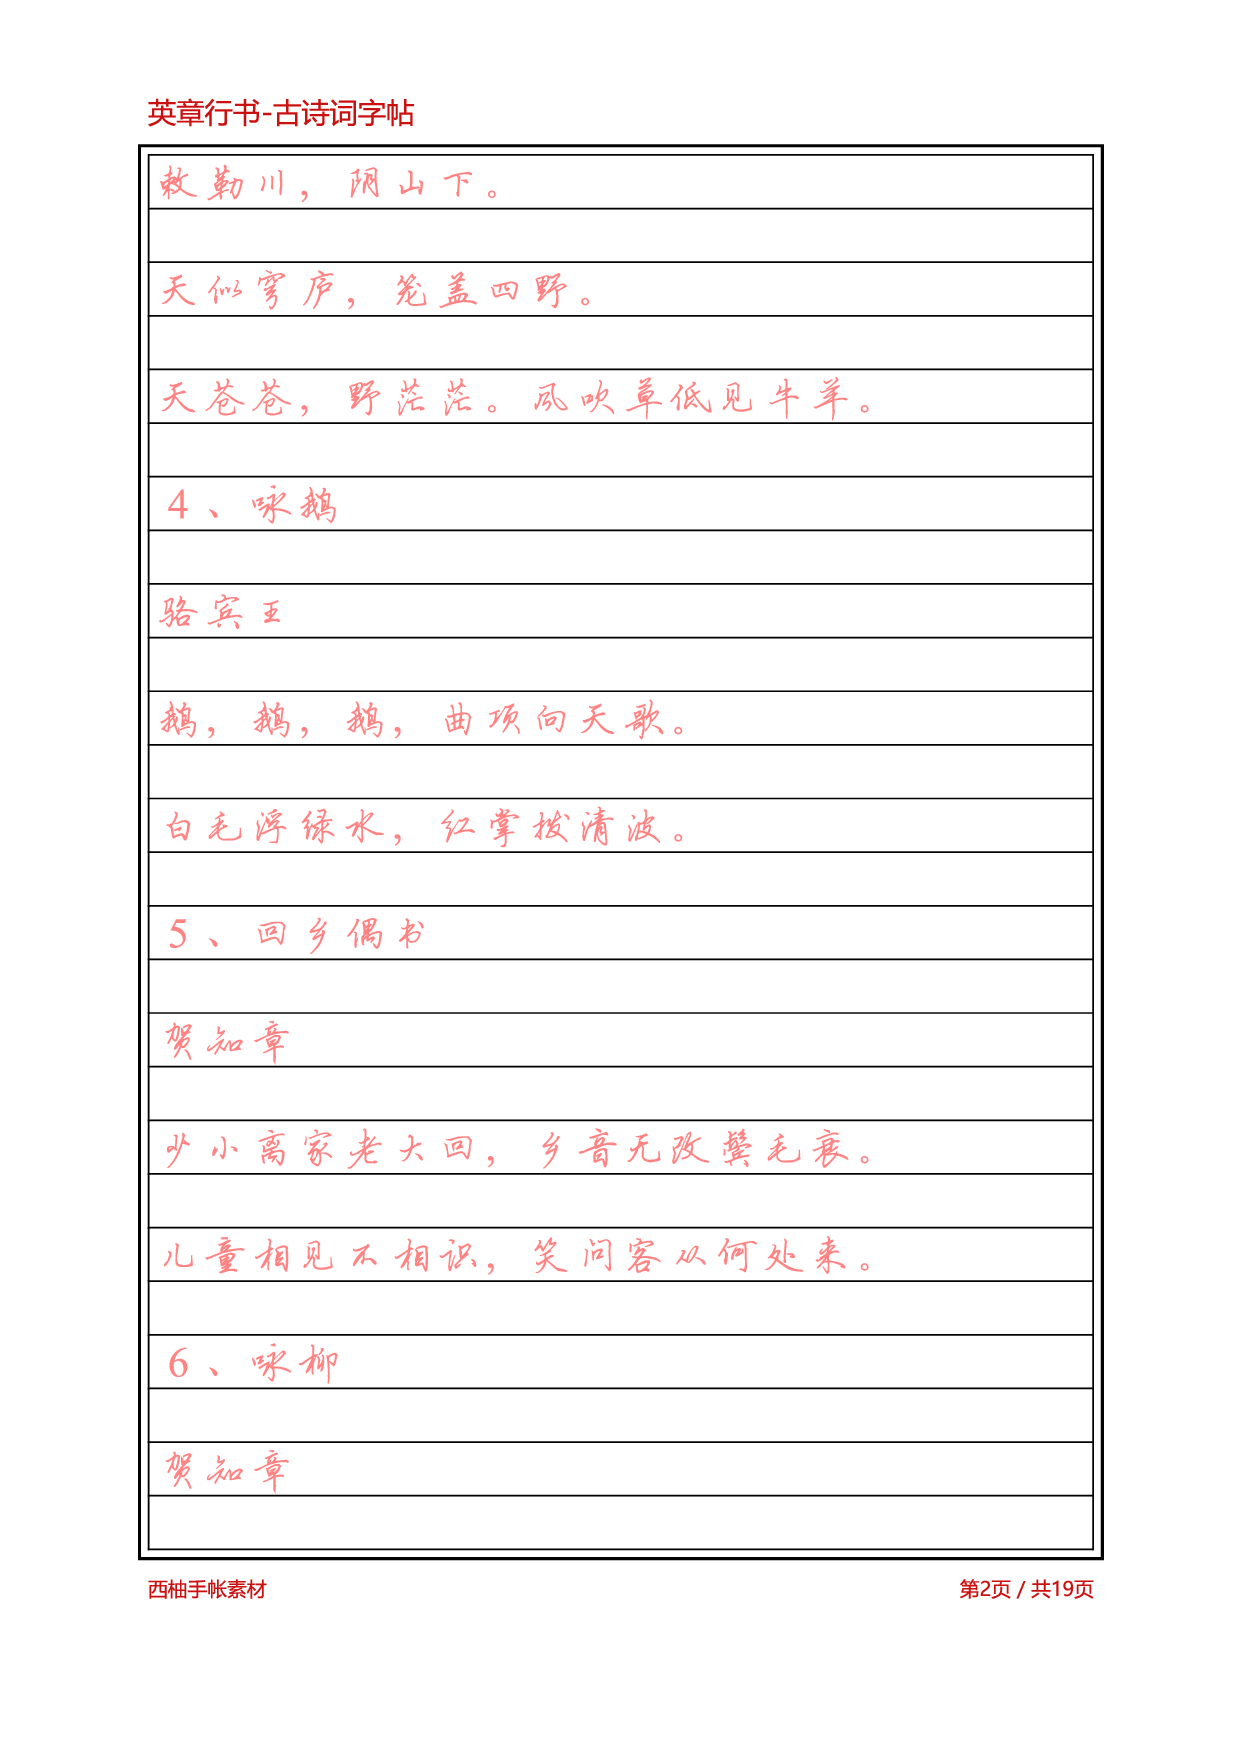 英章行书-古诗词字帖
敕勒川，阴山下。
天似穹庐，笼盖四野。
天苍苍，野茫茫。风吹草低见牛羊。
4、咏鹅
骆宾王
鹅，鹅，鹅，曲项向天歌。
白毛浮绿水，红掌拨清波。
5、回乡偶书
贺知章
少小离家老大回，乡音无改鬓毛衰。
儿童相见不相识，笑问客从何处来。
6、咏柳
贺知章
西柚手帐素材
第2页 / 共19页